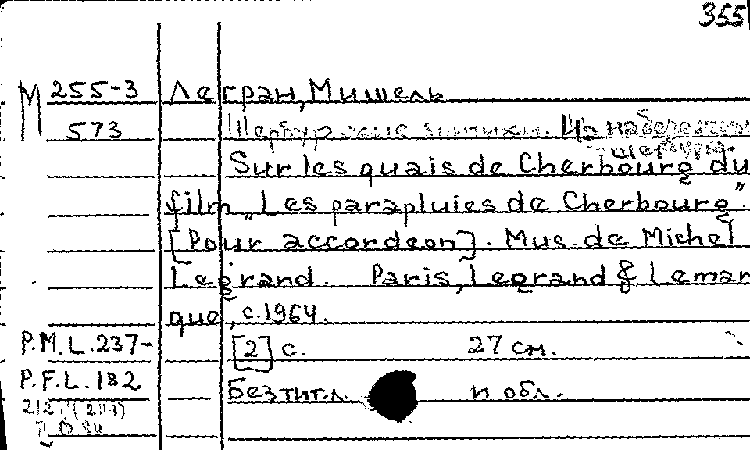 355
М 255-3 Легран, Мишель
573 Шербургские зонтики. На набережной
Шербура.
Sur les quais de Cherbourg du
film „Les parapluies de Cherbourg”.
[Pour accordeon]. Mus. de Michel
Legrand. Paris, Legrand & Lemar
que, c.1964.
P.M.L.237- [2] с. 27 см.
P.F.L.182 Без тит. л. и обл.